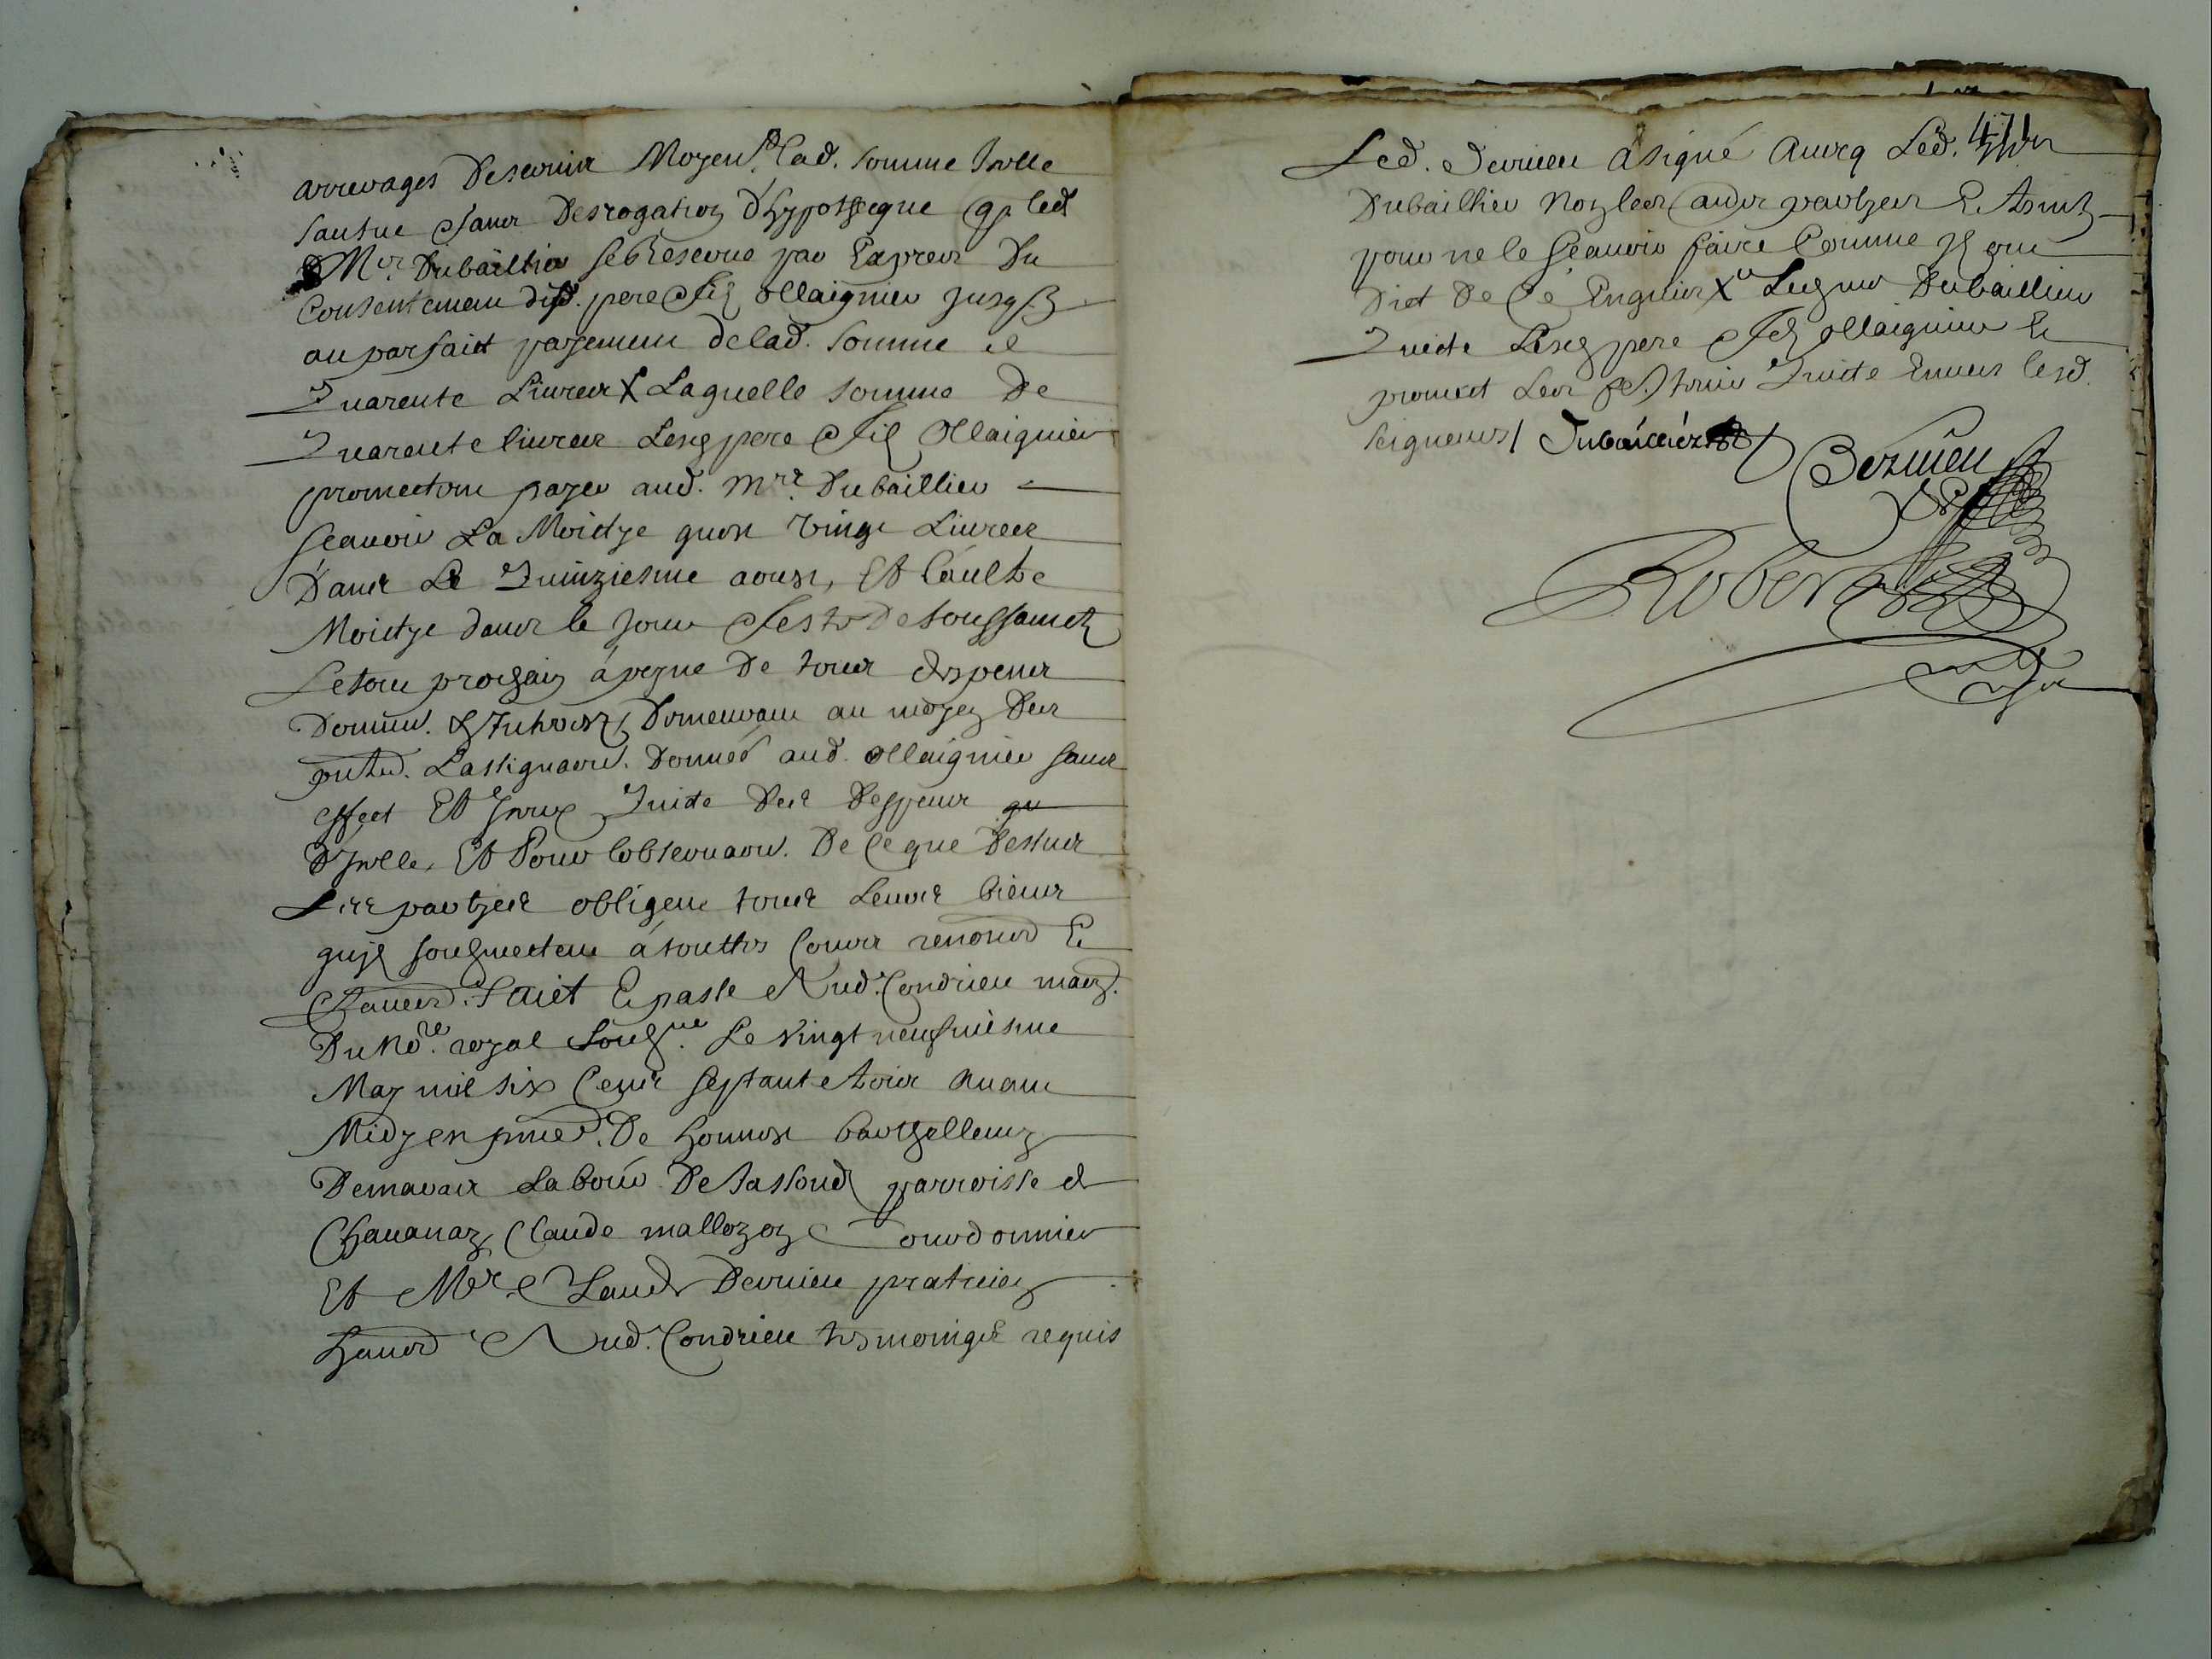 arrerages Moyen.t lad. somme
sans desrogation d'hypotheque q. led
Mre. Dubaillier se reserve par expres du
consentement desd. pere & filz Ollaignier jusq.
au parfaict payement de lad. somme de
Quarente Livres X Laquelle somme de
Quarente livres Lesd pere & filz Ollaignier
promectent payer aud. mre. Dubaillier
scavoir La Moictye quest vingt Livres
dans Le Quinziesme aoust, et l'aultre
Moictye dans le jour & feste de toussainctz
Le tout prochain a peyne de tous despens
domm. & Interestz, Demeurant au moyen des
pntes. Lassignaon. donnée aud. Ollaignier sans
effect et Quicte des despens
d'Icelle, et Pour lobservaon. De ce que dessus
Les partyes obligent tous Leurs biens
quilz soubzmectent a touttes Cours renoncé &
Clauses. Faict & passé Aud. Condrieu mais.
Du No.re royal soubz.né Le vingt neufviesme
May mil six Cens septante trois avant
Midy en pnce. De honnest barthellemy
Demavaix Labour. De parroisse de
Chavanay, Claude mallozon Courdonnier
Et Mre. Claude Dervieu praticien
habit Aud. Condrieu tesmoingtz requis
Led. Dervieu a signé Avecq Led. Mre 471
Dubaillier Non les autres partyes & tesmoingtz
pour ne le scavoir faire Comme ilz ont
Dict De ce Enquis X Led mre Dubaillier
Quicte Lesd pere & filz Ollaignier &
promect Les tenir Quicte Envers lesd.
seigneurs / Dubaillier
Dervieu
Robert